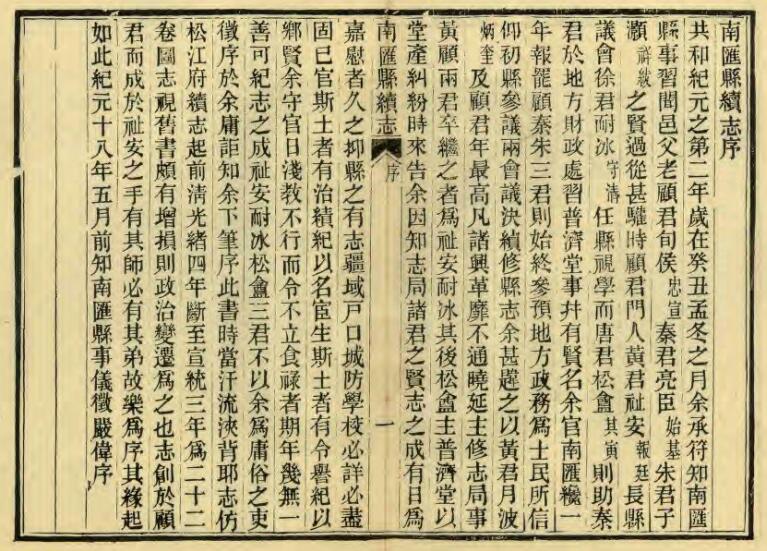 南匯縣續志序
共和紀元之第二年歲在癸丑孟冬之月余承符知南匯
縣事習聞邑父老顧君旬侯忠宣秦君亮臣始基朱君子
灝祥紱之賢過從甚驩時顧君門人黃君祉安報廷長縣
議會徐君耐冰守清任縣視學而唐君松盦其寅則助秦
君於地方財政處習普濟堂事幷有賢名余官南匯纔一
年報罷顧秦朱三君則始終參預地方政務爲士民所信
仰初縣參議兩會議決續修縣志余甚韙之以黃君月波
炳奎及顧君年最高凡諸興革靡不通曉延主修志局事
黃顧兩君卒繼之者爲祉安耐冰其後松盦主普濟堂以
堂產糾紛時來告余因知志局諸君之賢志之成有日爲
南匯縣續志 序 一
嘉慰者久之抑縣之有志疆域戶口城防學校必詳必盡
固已官斯土者有治績紀以名宦生斯土者有令譽紀以
鄉賢余守官日淺敎不行而令不立食祿者期年幾無一
善可紀志之成祉安耐冰松盦三君不以余爲庸俗之吏
徵序於余庸詎知余下筆序此書時當汗流浹背耶志仿
松江府續志起前淸光緒四年斷至宣統三年爲二十二
卷圖志視舊書頗有增損則政治變遷爲之也志創於顧
君而成於祉安之手有其師必有其弟故樂爲序其緣起
如此紀元十八年五月前知南匯縣事儀徵嚴偉序